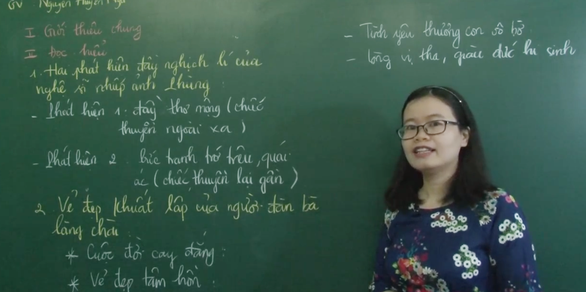 GV Nguyễn Huyền Nga
I Giới thiệu chung
II Đọc hiểu
1. Hai phát hiện đầy nghịch lí của
nghệ sĩ nhiếp ảnh Phùng:
- Phát hiện 1: đầy thơ mộng (chiếc
thuyền ngoài xa)
- Phát hiện 2: bức tranh trớ trêu, quái
ác (chiếc thuyền lại gần)
2. Vẻ đẹp khuất lấp của người đàn bà
làng chài
* Cuộc đời cay đắng:
* Vẻ đẹp tâm hồn:
- Tình yêu thương con vô bờ
- Lòng vị tha, giàu đức hi sinh